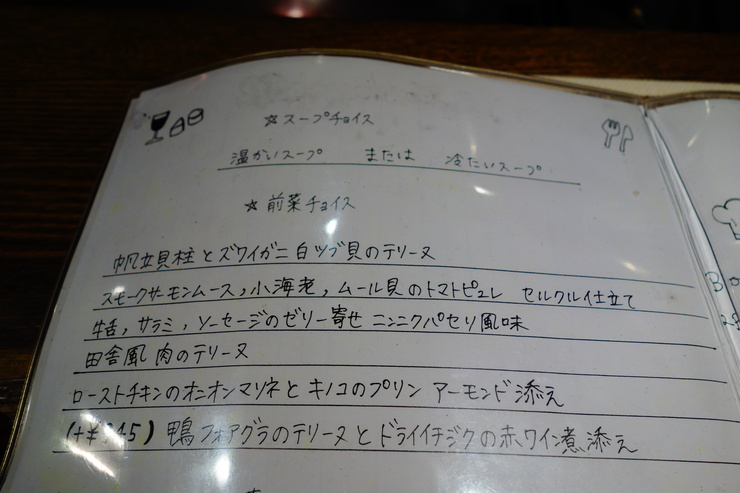 ☆スープチョイス
温かいスープ または 冷たいスープ
☆前菜チョイス
帆立貝柱とズワイガニ白ツブ貝のテリーヌ
スモークサーモンムース,小海老,ムール貝のトマトピュレ セルクル仕立て
牛舌,サラミ,ソーセージのゼリー寄せ ニンニクパセリ風味
田舎風 肉のテリーヌ
ローストチキンのオニオンマリネとキノコのプリン アーモンド添え
鴨フォアグラのテリーヌとドライイチジクの赤ワイン煮添え